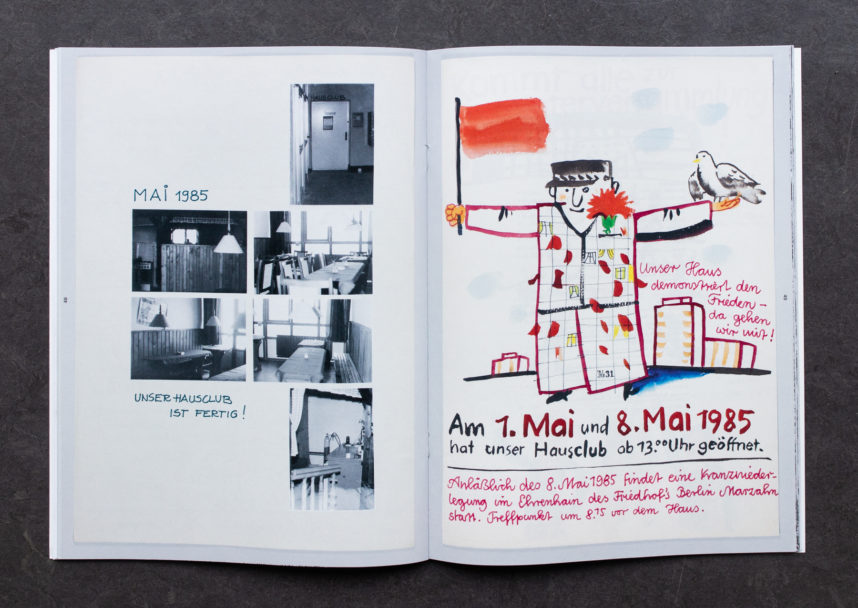 HAUSCLUB
MAI 1985
UNSER HAUSCLUB
IST FERTIG!
kommt alle zur
Unser Haus
demonstriert den
Frieden –
da gehen
wir mit!
31
Am 1. Mai und 8. Mai 1985
hat unser Hausclub ab 13.⁰⁰ Uhr geöffnet.
Anläßlich des 8. Mai 1985 findet eine Kranznieder-
legung im Ehrenhain des Friedhof's Berlin Marzahn
statt. Treffpunkt um 8.¹⁵ vor dem Haus.